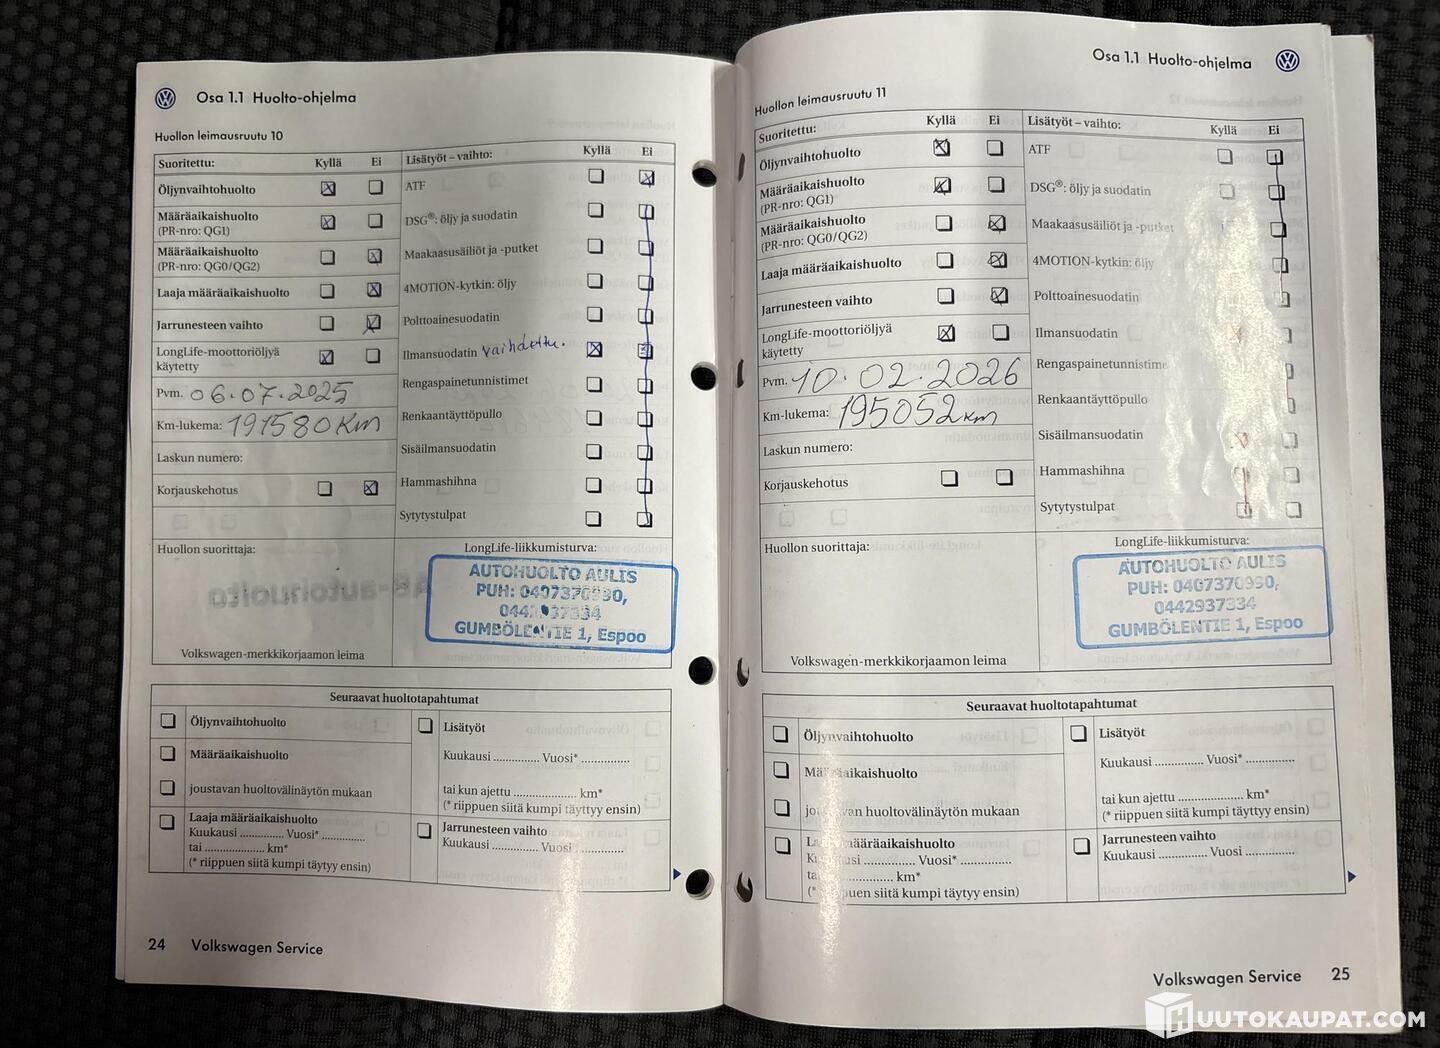 Osa 1.1 Huolto-ohjelma
Huollon leimausruutu 10
Suoritettu: Kyllä Ei
Öljynvaihtohuolto
Määräaikaishuolto
(PR-nro: QG1)
Määräaikaishuolto
(PR-nro: QG0/QG2)
Laaja määräaikaishuolto
Jarrunesteen vaihto
LongLife-moottoriöljyä
käytetty
Pvm. 06.07.2025
Km-lukema: 191580 Km
Laskun numero:
Korjauskehotus
Lisätyöt – vaihto: Kyllä Ei
ATF
DSG®: öljy ja suodatin
Maakaasusäiliöt ja -putket
4MOTION-kytkin: öljy
Polttoainesuodatin
Ilmansuodatin vaihdettu.
Rengaspainetunnistimet
Renkaantäyttöpullo
Sisäilmansuodatin
Hammashihna
Sytytystulpat
Huollon suorittaja:
Volkswagen-merkkikorjaamon leima
LongLife-liikkumisturva:
AUTOHUOLTO AULIS
PUH: 0407370990,
GUMBÖLENTIE 1, Espoo
Seuraavat huoltotapahtumat
Öljynvaihtohuolto
Määräaikaishuolto
joustavan huoltovälinäytön mukaan
Laaja määräaikaishuolto
Kuukausi .............. Vuosi* ..............
tai .................... km*
(* riippuen siitä kumpi täyttyy ensin)
Lisätyöt
Kuukausi .............. Vuosi* ..............
tai kun ajettu .................... km*
(* riippuen siitä kumpi täyttyy ensin)
Jarrunesteen vaihto
Kuukausi .............. Vuosi ..............
24 Volkswagen Service
Osa 1.1 Huolto-ohjelma
Huollon leimausruutu 11
Suoritettu: Kyllä Ei
Öljynvaihtohuolto
Määräaikaishuolto
(PR-nro: QG1)
Määräaikaishuolto
(PR-nro: QG0/QG2)
Laaja määräaikaishuolto
Jarrunesteen vaihto
LongLife-moottoriöljyä
käytetty
Pvm. 10.02.2026
Km-lukema: 195052 km
Laskun numero:
Korjauskehotus
Lisätyöt – vaihto: Kyllä Ei
ATF
DSG®: öljy ja suodatin
Maakaasusäiliöt ja -putket
4MOTION-kytkin: öljy
Polttoainesuodatin
Ilmansuodatin
Rengaspainetunnistime
Renkaantäyttöpullo
Sisäilmansuodatin
Hammashihna
Sytytystulpat
Huollon suorittaja:
Volkswagen-merkkikorjaamon leima
LongLife-liikkumisturva:
AUTOHUOLTO AULIS
PUH: 0407370990,
0442937334
GUMBÖLENTIE 1, Espoo
Seuraavat huoltotapahtumat
Öljynvaihtohuolto
Määräaikaishuolto
joustavan huoltovälinäytön mukaan
Laaja määräaikaishuolto
Kuukausi .............. Vuosi* ..............
tai .................... km*
(* riippuen siitä kumpi täyttyy ensin)
Lisätyöt
Kuukausi .............. Vuosi* ..............
tai kun ajettu .................... km*
(* riippuen siitä kumpi täyttyy ensin)
Jarrunesteen vaihto
Kuukausi .............. Vuosi ..............
Volkswagen Service 25
HUUTOKAUPAT.COM